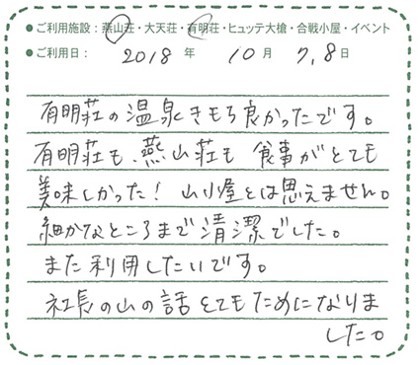 ●ご利用施設：燕山荘・大天荘・有明荘・ヒュッテ大槍・合戦小屋・イベント
●ご利用日： 2018 年 10 月 7,8 日
有明荘の温泉きもち良かったです。
有明荘も、燕山荘も 食事がとても
美味しかった！ 山小屋とは思えません。
細かなところまで清潔でした。
また利用したいです。
社長の山の話とてもためになりま
した。